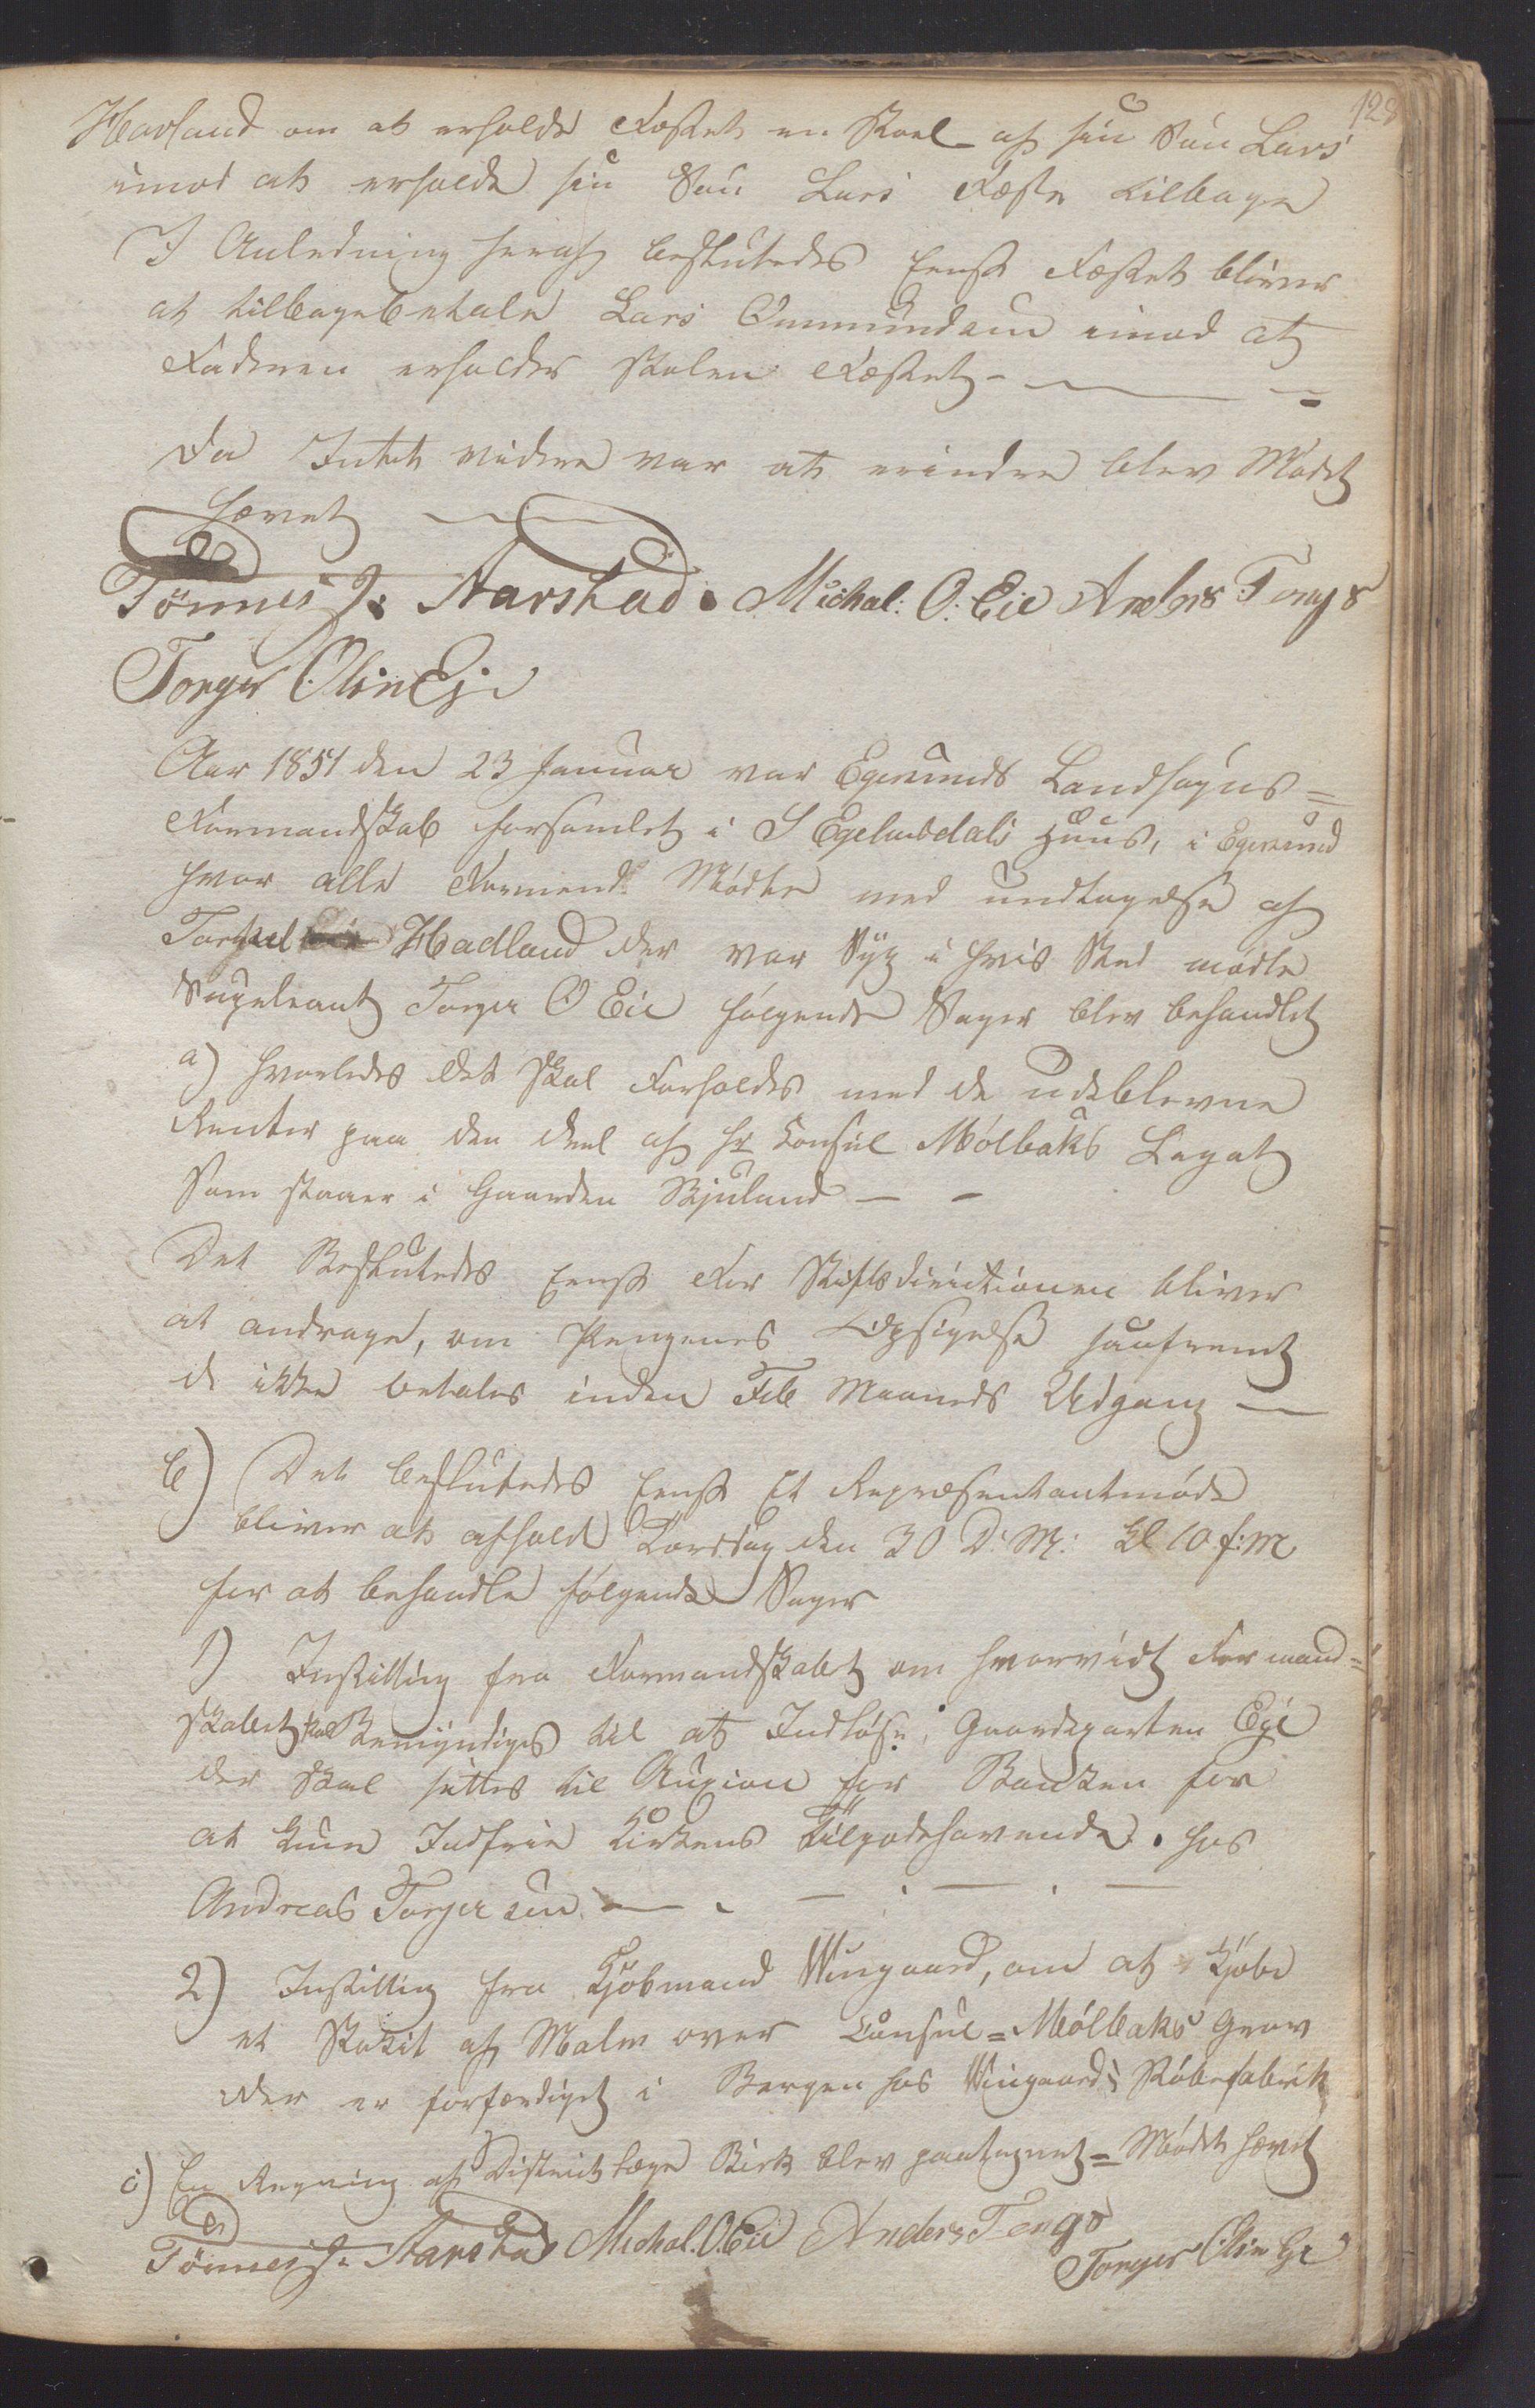 128
Havland om at erholde Fæstet en Stoel af sin Søn Lars
imod at erholde sin Søn Lars Fæste tilbage
I Anledning heraf besluttedes Eenst Fæstet bliver
at tilbagebetale Lars Ommundsen imod at
Faderen erholder Stolen Fæstet
Da Intet videre var at erindre blev Mødet
hævet
Tönnes J: Aarstad. Michal: O: Eie Anders Tengs
Torger Olsen Eje
Aar 1851 den 23 Januar var Egersunds Landsogns=
Formandskab forsamlet i S Egelandsdals Huus, i Egersund
hvor alle Formend Mødte med undtagelse af
Torkel Hadland der var Syg i hvis Sted mødte
Supleant Torger O Eie følgende Sager blev behandlet
a) Hvorledes det skal Forholdes med de udeblevne
Renter paa den deel af Hr Consul Mølbaks Legat
Som staaer i Gaarden Skjuland
Det Besluttedes Eenst For Stiftsdirictionen bliver
at andrage, om Pengenes Opsigelse saafremt
de ikke betales inden Feb Maaneds Udgang
b) Det besluttedes Eenst Et Repræsentantmøde
bliver at afholde Torsdag den 30 D: M: Kl 10 f:m
for at behandle følgende Sager
1) Instilling fra Formandskabet om hvorvidt Formand=
skabet skal Bemyndiges til at Indløse Gaardsparten Ege
der skal settes til Auxion for Banken for
at kun Indfrie Kirkens Tilgodehavende hos
Andreas Torgersen
2) Instilling fra Kjøbmand Wingaard, om at Kjøbe
et Stakit af Malm over Consul=Mølbaks Grav
der er forfærdiget i Bergen hos Wingaards Støbefabrik
c) En Regning af Districtslæge Birk blev paategnet = Mødet hævet
Tönnes J. Aarstad Michal. O. Eie Anders Tengs
Torger Olsen Eje